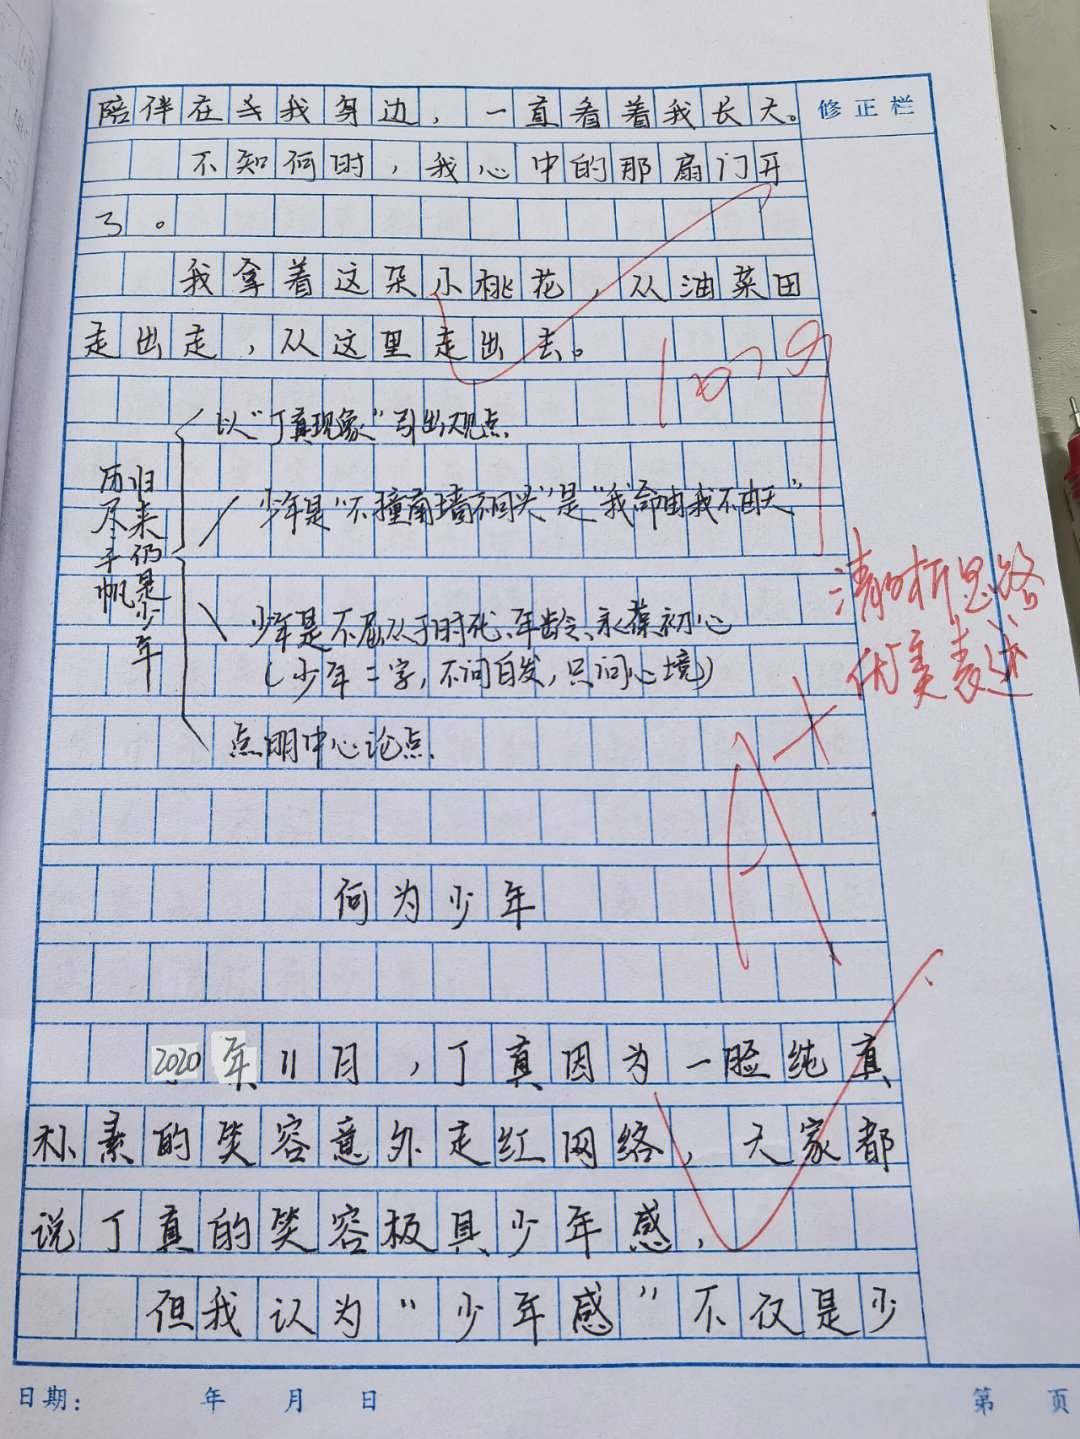 陪伴在我身边，一直看着我长大。
修正栏
不知何时，我心中的那扇门开
了。
我拿着这朵小桃花，从油菜田
走出走，从这里走出去。
10.29
以“丁真现象”引出观点.
历尽千帆
归来仍是少年
少年是“不撞南墙不回头”是“我命由我不由天”
少年是不屈从于时光、年龄、永葆初心
(少年二字，不问白发，只问心境)
点明中心论点.
清晰思路
优美表述
A+
何为少年
2020年11月，丁真因为一脸纯真
朴素的笑容意外走红网络，大家都
说丁真的笑容极具少年感，
但我认为“少年感”不仅是少
日期： 年 月 日
第 页